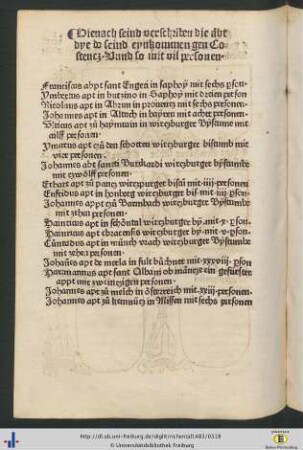 Hienach seind verschriben die äbt
dye do seind eynkommen gen Co-
stencz. Vnnd so mit vil personen.
Franciscus abpt sant Eugen in saphoy mit sechs pson
Vmbertus apt in butino in Saphoy mit dreien person
Nicolaus apt in Abrun in prouentz mit sechs personen.
Johannes apt in Altoch in bayren mit achte personen.
Viticus apt zů haymtuin in witzburger Bystumbe mit
eilff personen.
Ymarus apt zů den schotten witzburger bistumb mit
vier personen.
Johannes abt sancti Burckardi witzburger bystumbe
mit zwölff personen.
Erhart apt zů pantz witzpurger bistu mit iiij personen
Enfridus apt in honberg witzburger bis mit iiij psonen
Johannes appt zů Bannbach witzburger Bystumbe
mit zehen personen.
Hainricus apt in schöntal witzburger by. mit x. pson.
Hainricus apt ebracensis witzburger by. mit v. pson.
Cůnradus apt in münch vrach witzburger Bystumbe
mit zehen personen.
Johannes apt de merla in fult bühner mit xxxviij pson
Haramannus apt sant Albani ob mäntz ein gefürster
appt mit xweinczigen personen.
Johannes apt zů melch in österreich mit xxiij personen.
Johannes apt zů kemnitz in Missen mit sechs personen
http://dl.ub.uni-freiburg.de/diglit/richental1483/0318
© Universitätsbibliothek Freiburg